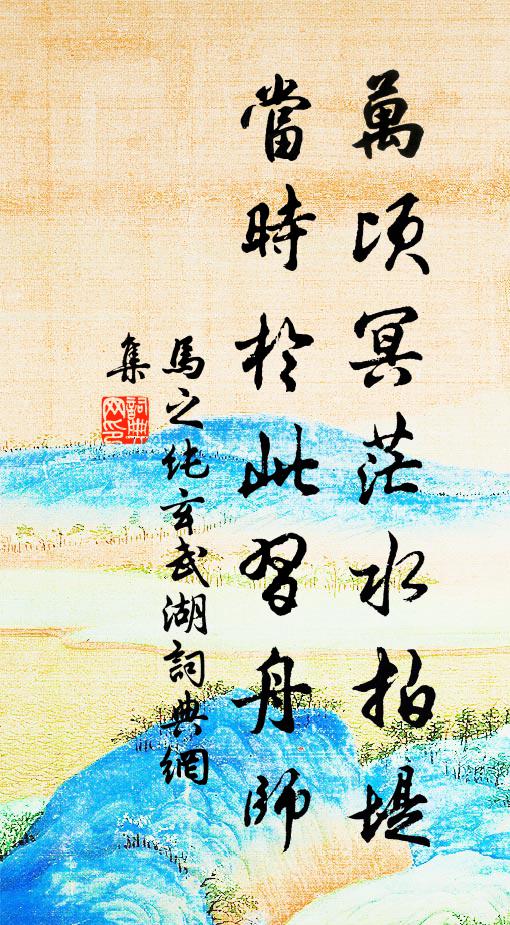 萬頃冥茫水拍堤
當時於此習舟師
馬之純玄武湖詞典網
集
詞典網印